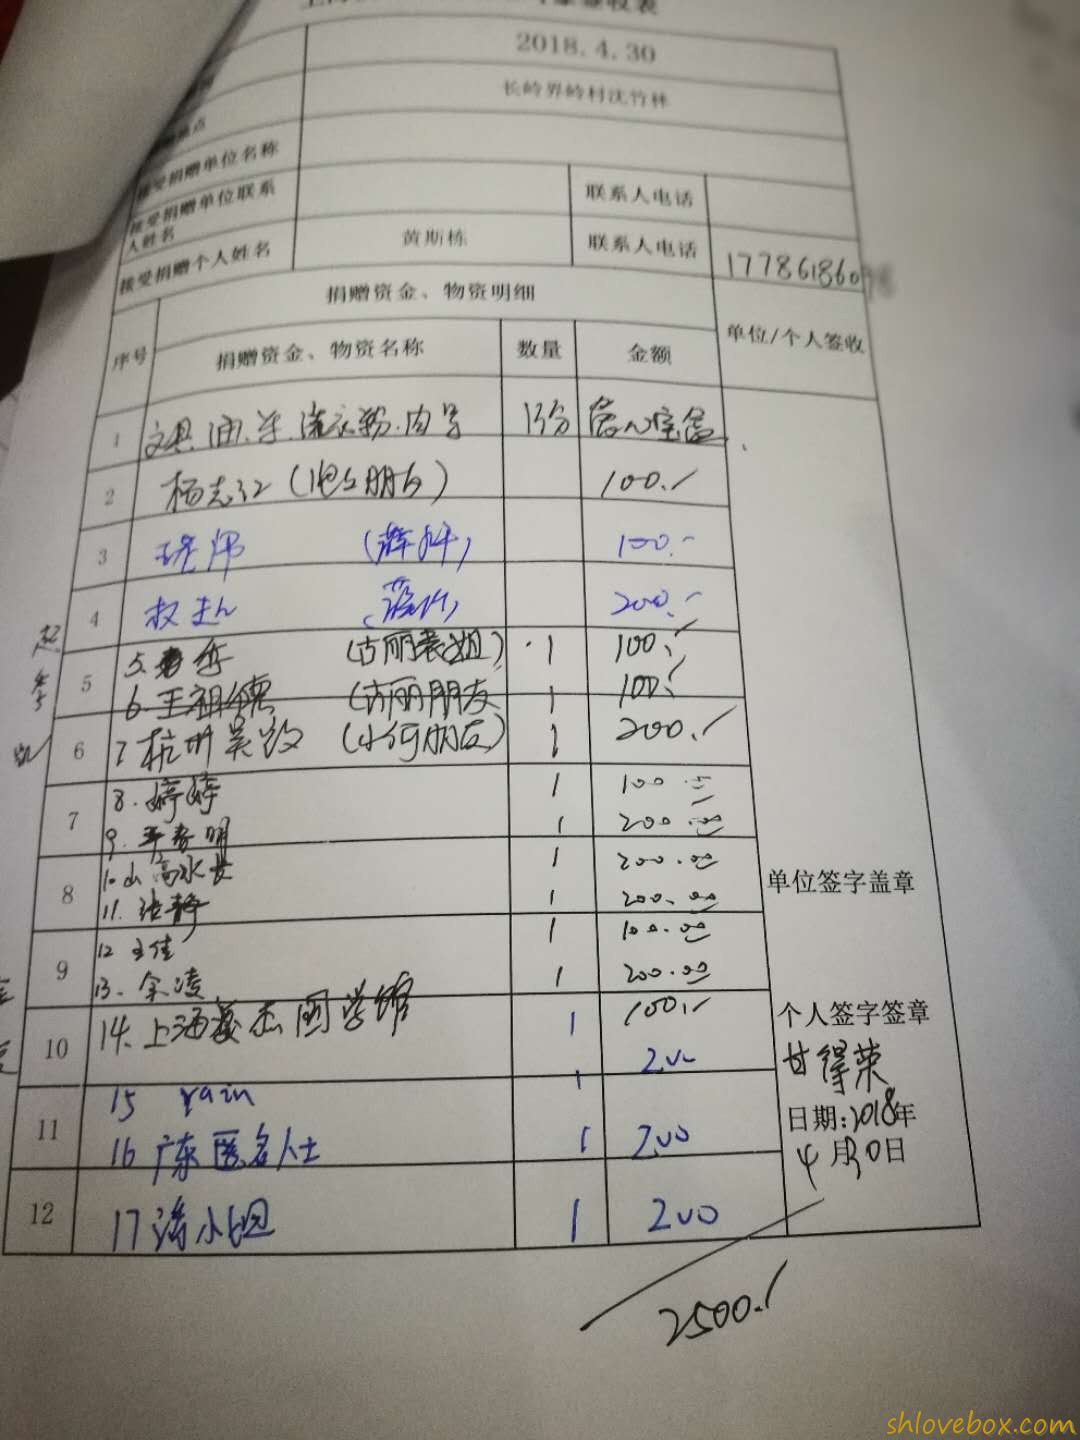 签收表
2018.4.30
长岭界岭村沈竹林
点
接受捐赠单位名称
接受捐赠单位联系人姓名 联系人电话
接受捐赠个人姓名 黄斯栋 联系人电话 1778618607
捐赠资金、物资明细 单位/个人签收
序号 捐赠资金、物资名称 数量 金额
1 文具.油.米.洗衣粉.肉等
2 杨志江(朋友) 100.
3 100.-
4 200.-
5. (古丽表姐) 1 100.
5
6.王祖德 (古丽朋友 1 100.
6 7 杭州吴 (小何朋友) 1 200.
8.婷婷 1 100
7
9. 春明 1 200.00
10.山高水长 1 200.00
8 单位签字盖章
11. 张静 1 200.00
12 王佳 1 100.00
9
13. 余凌 1 200.00
14.上海 国学馆 1 100. 个人签字签章
10 200
甘得荣
15 rain 1
11 日期:2018年
16 广东匿名人士 1 200 4月30日
12 17 潘小姐 1 200
2500.
shlovebox.com